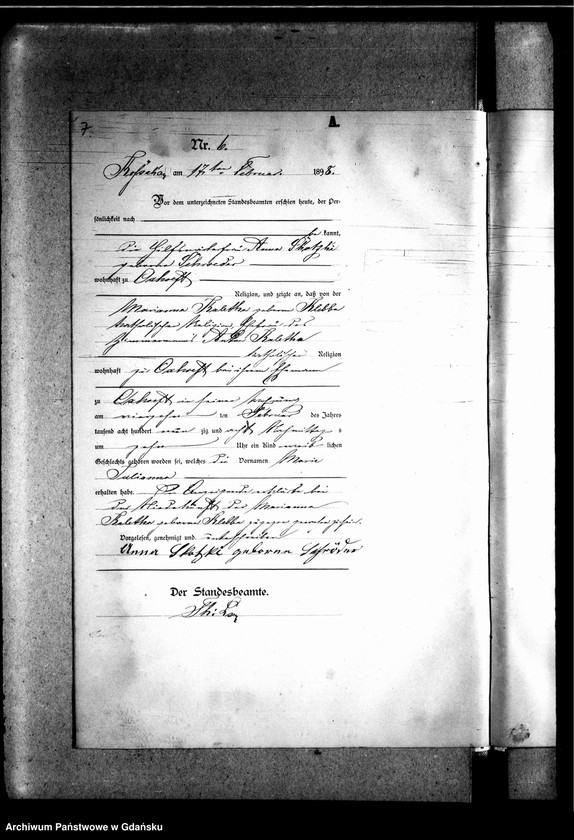 7.
A.
Nr. 6.
am 17ten Februar 1898.
Vor dem unterzeichneten Standesbeamten erschien heute, der Per-
sönlichkeit nach
be kannt,
die Anna Skotzki
geborene Schroeder
wohnhaft zu Oxhoeft
Religion, und zeigte an, daß von der
Marianna Kaletka geborene Klebba
katholischer Religion, Ehefrau des
Kaletka
katholischer Religion
wohnhaft zu Oxhoeft bei ihrem Ehemann
zu Oxhoeft in seiner Wohnung
am vierzehn ten Februar des Jahres
tausend acht hundert neun zig und acht Nachmittag s
um zehn Uhr ein Kind weib lichen
Geschlechts geboren worden sei, welches die Vornamen Marie
Julianna
erhalten habe. Die Anzeigende erklärte bei
der Niederkunft der Marianna
Kaletka geborene Klebba zugegen gewesen zu sein.
Vorgelesen, genehmigt und unterschrieben
Anna Skotzki geborene Schröder
Der Standesbeamte.
Archiwum Państwowe w Gdańsku